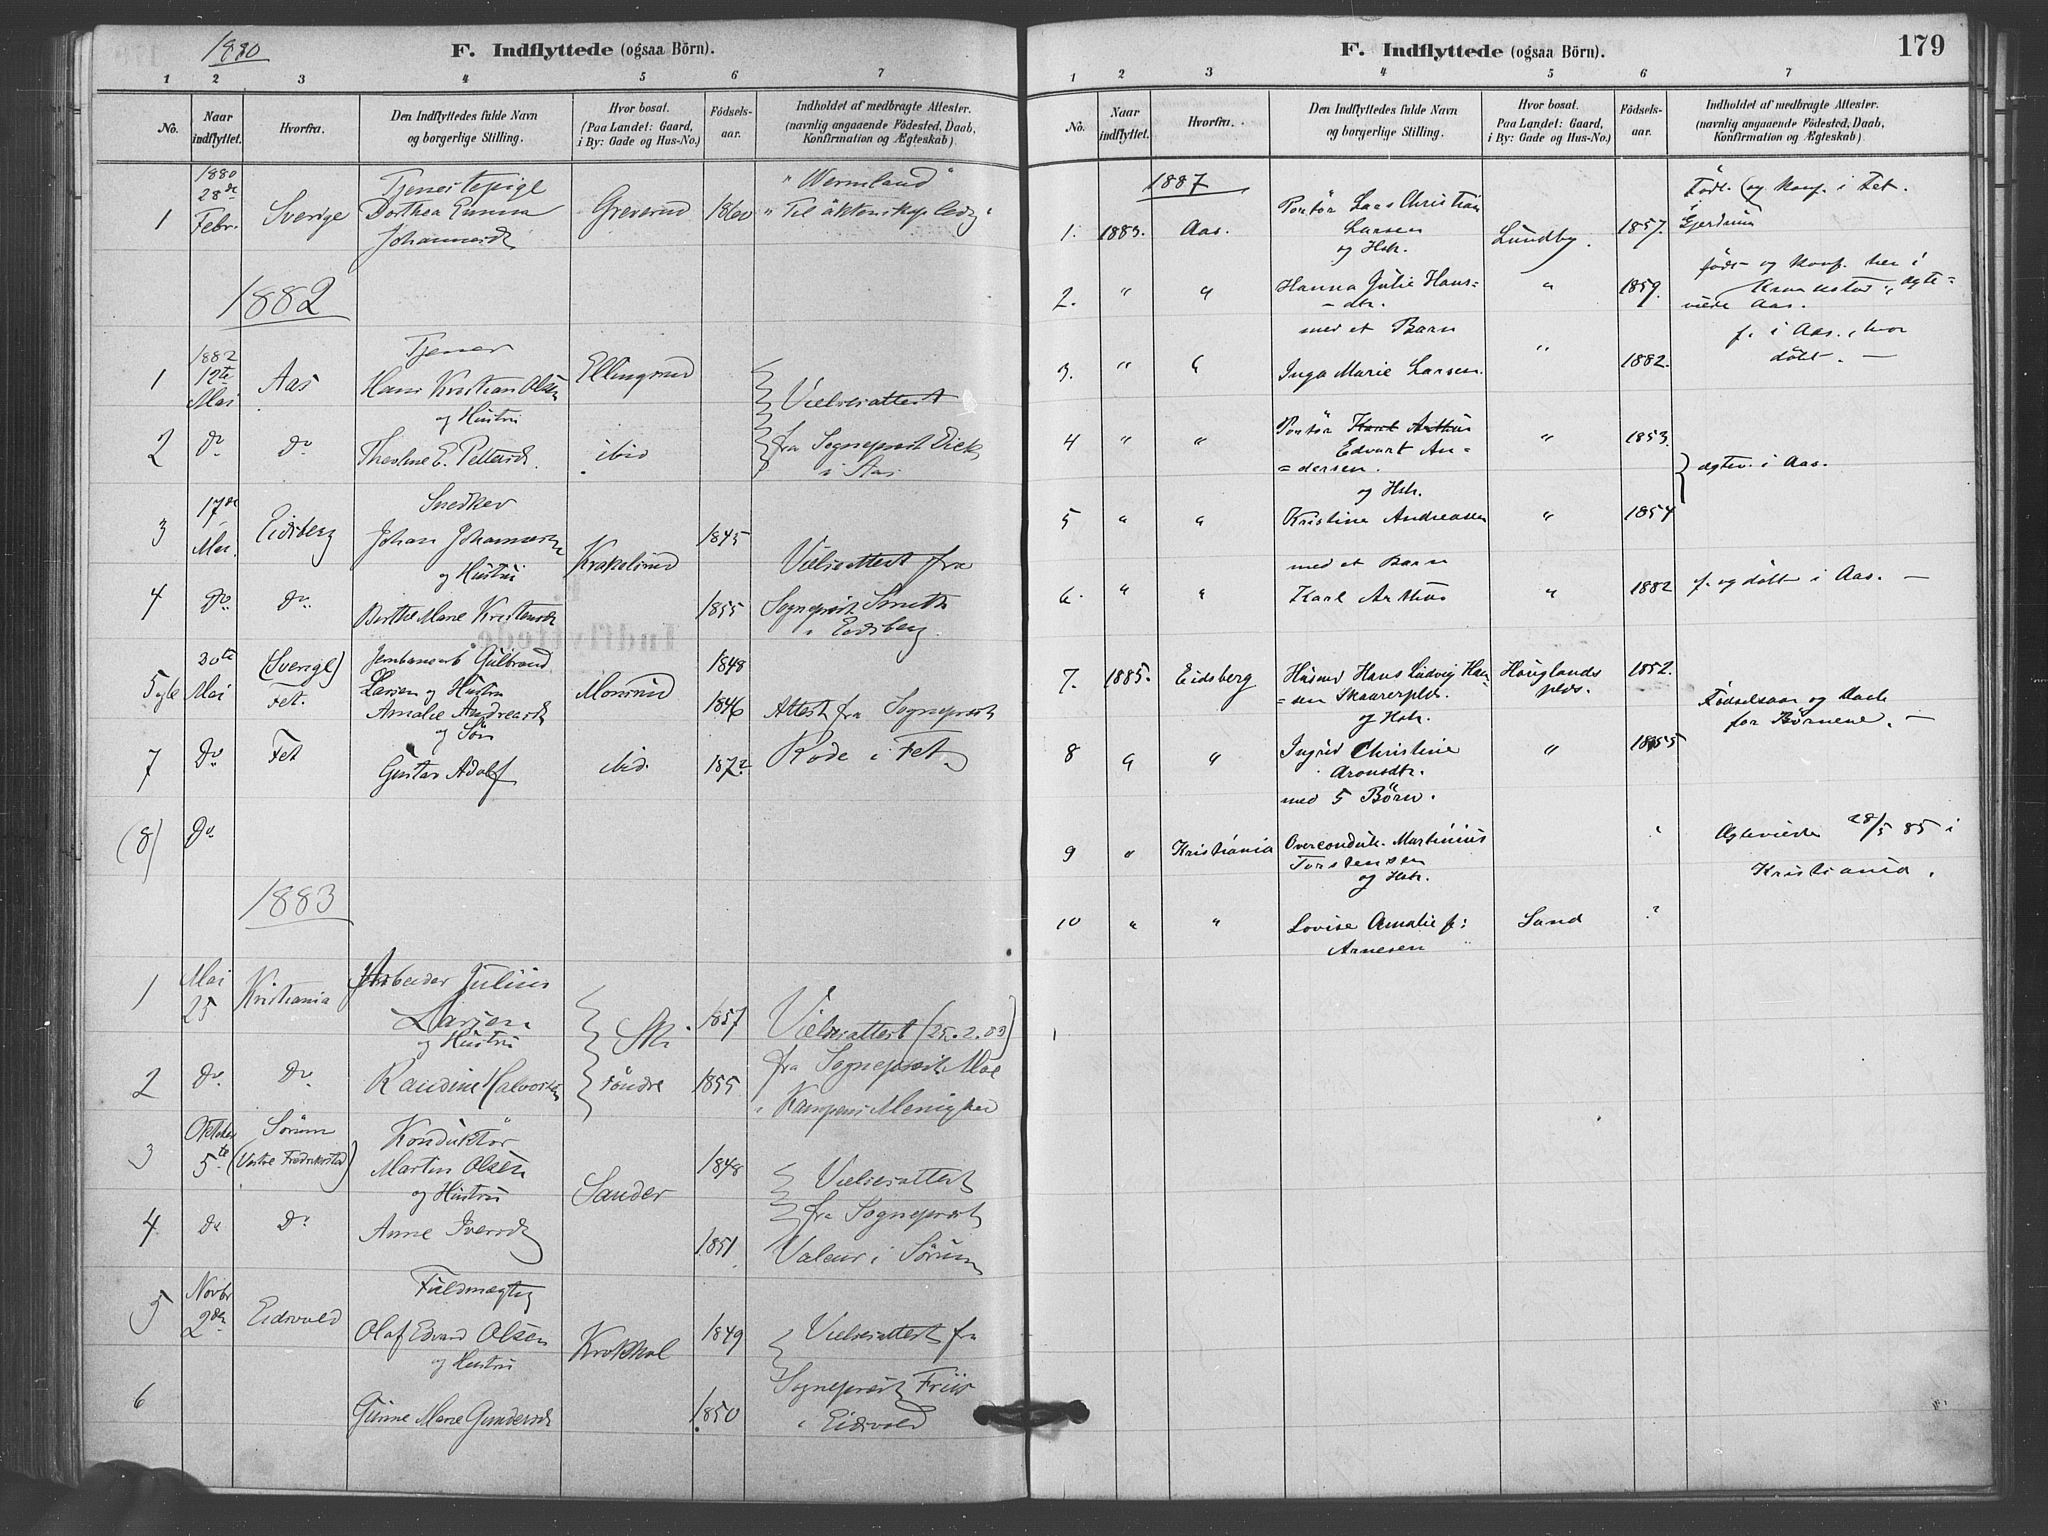 1880
F. Indflyttede (ogsaa Börn).
1 2 3 4 5 6 7
No.
Naar indflyttet.
Hvorfra.
Den Indflyttedes fulde Navn og borgerlige Stilling.
Hvor bosat. (Paa Landet: Gaard, i By: Gade og Hus-No.)
Födsels-aar.
Indholdet af medbragte Attester. (navnlig angaaende Födested, Daab, Konfirmation og Ægteskab)
1880
28de Tjenestepige "Wermland"
1 Febr. Sverige Dorthea Emma Greverud 1860
Johannesd
1882
1882 Tjener
1 12te Mai Aas Hans Kristian Olsen Ellingsrud
og Hustru Vielsesattest
2 do do Theoline E. Pettersd. ibid fra Sogneprest Dick
i Aas
17de Snedker
3 Mai. Eidsberg Johan Johannesen Krakelsrud 1845
og Hustru Vielsesattest fra
4 Do Do Berthe Marie Kristensd 1855 Sogneprest Smith
i Eidsberg
30te (Sverige) Gulbrand 1848
5 og 6 Mai Fet. Larsen og Hustru 1846
Amalie Andreasd Attest fra Sogneprest
og Sön
7 Do Fet Gustav Adolf ibid. 1872 Rode i Fet
(8) Do
1883
1 Mai 25 Kristiania Arbeider Julius
Larsen Ski 1857 Vielsesattest (25.2.83)
og Hustru fra Sogneprest Moe
2 Do Do Randine Halvorsen söndre 1855
i Kampens Menighed
Oktober Sörum Konduktör
3 5te (Vestre Fredrikstad) Martin Olsen 1848 Vielsesattest
og Hustru Sander fra Sogneprest
4 Do Do Anne Iversd 1851 Valeur i Sörum
Novbr Fuldmægtig
5 2den Eidsvold Olaf Edvard Olsen Krokhol 1849 Vielsesattest fra
og Hustru Sogneprest Friis
6 Gunne Marie Gundersd 1850 i Eidsvold
F. Indflyttede (ogsaa Börn).
179
1 2 3 4 5 6 7
No.
Naar indflyttet.
Hvorfra.
Den Indflyttedes fulde Navn og borgerlige Stilling.
Hvor bosat. (Paa Landet: Gaard, i By: Gade og Hus-No.)
Födsels-aar.
Indholdet af medbragte Attester. (navnlig angaaende Födested, Daab, Konfirmation og Ægteskab)
1887 Födt (og konf. i Fet.
Portör Lars Christian i Gjerdrum
1. 1883. Aas. Larsen Lundby. 1857.
og Hstr.
2. " " Hanna Julie Hans- " 1859. födt og konf. her i
=dtr. Kraakstad, ægte-
med et Barn viede Aas.
3. " " Inga Marie Larsen. " 1882. f. i Aas, hvor
döbt. —
4 " " Portör Karl Arthur " 1853.
Edvart An-
=dersen. ægtev. i Aas.
og Hstr.
5 " " Kristine Andreassen " 1854
med et Barn
6. " " Karl Arthur " 1882 f. og döbt i Aas. —
7. 1885. Eidsberg Husmd Hans Ludvig Han- Hauglands 1852.
=sen Skaarerplds. plds. Födselsaar og Daab
og Hstr. for Börnene. —
8 " " Ingrid Christine " 1855
Aronsdtr.
med 5 Börn.
9 " Kristiania Overconduk. Martinius ? Ægteviede 28/5 85 i
Torstensen Kristiania.
og Hstr.
10 " " Lovise Amalie f: Sand ?
Arnesen